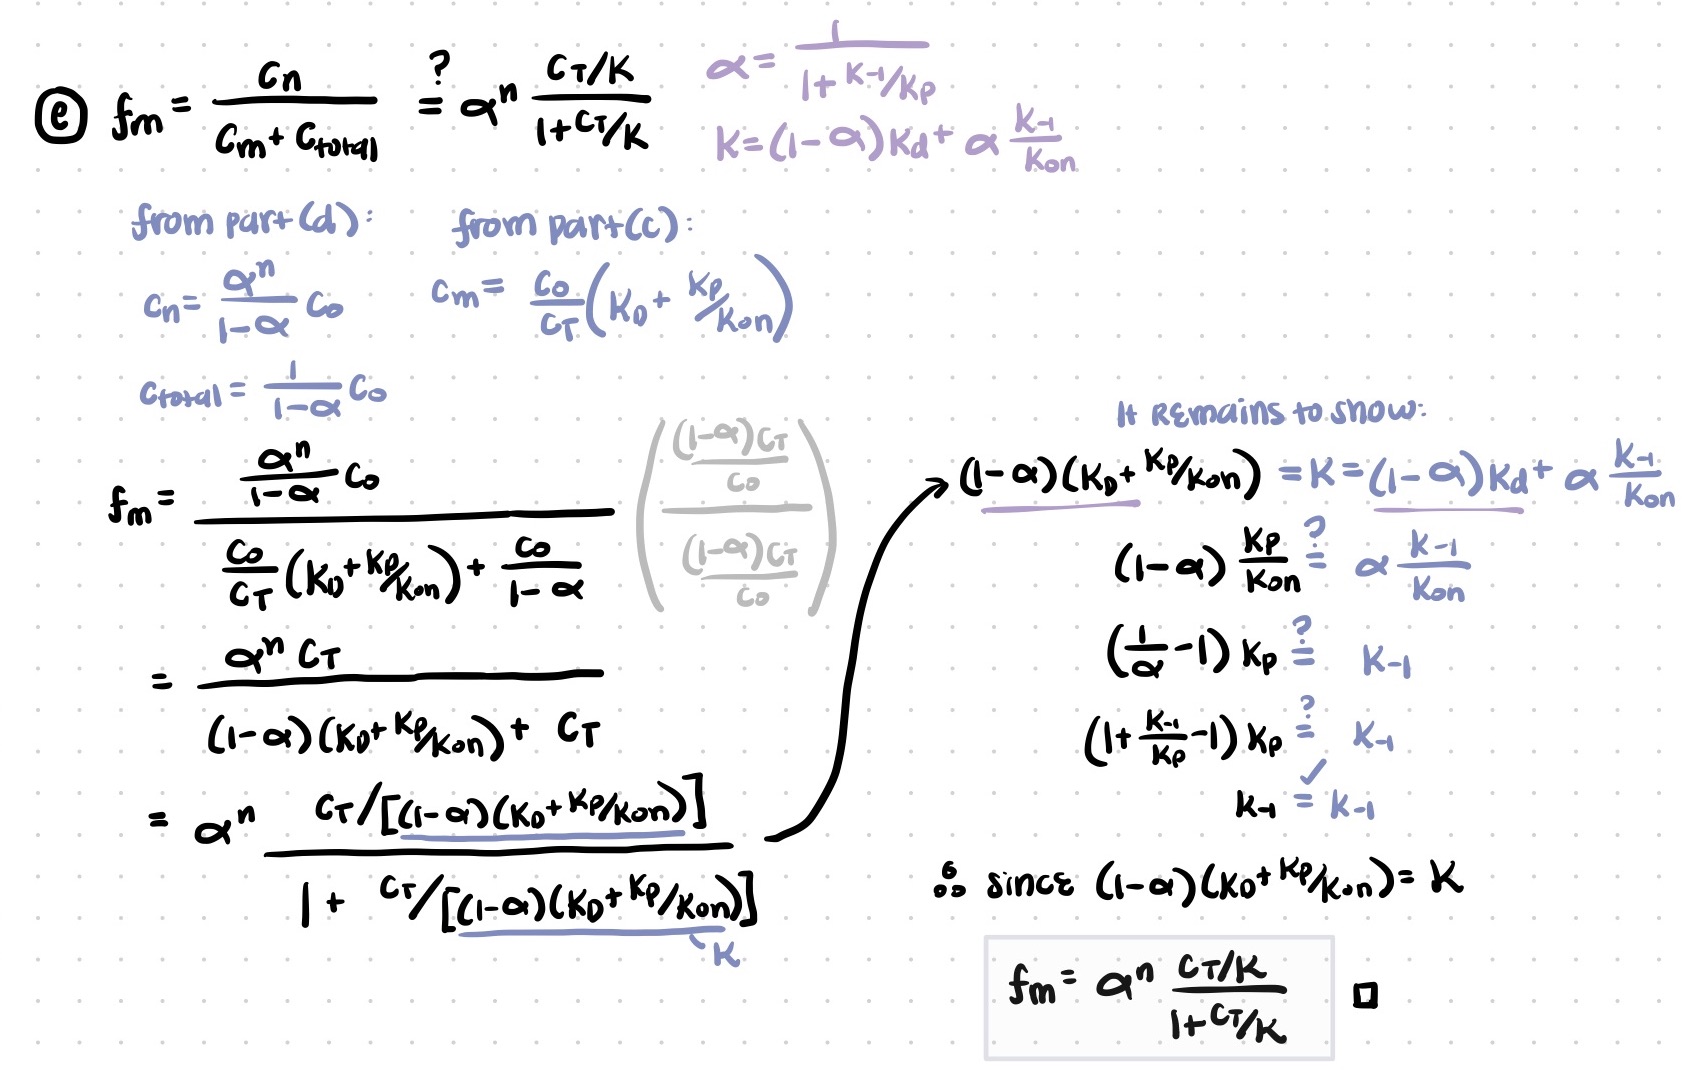 (e) fm = Cn / (Cm + Ctotal) ?= α^n (CT/K) / (1 + CT/K)
α = 1 / (1 + K-1/Kp)
K = (1-α)Kd + α K-1/Kon
from part (d):
Cn = α^n / (1-α) C0
Ctotal = 1 / (1-α) C0
from part (c):
Cm = C0/CT (KD + Kp/Kon)
fm = (α^n / (1-α) C0) / (C0/CT (KD + Kp/Kon) + C0 / (1-α)) (((1-α)CT / C0) / ((1-α)CT / C0))
= α^n CT / ((1-α)(KD + Kp/Kon) + CT)
= α^n (CT/[(1-α)(KD + Kp/Kon)]) / (1 + CT/[(1-α)(KD + Kp/Kon)])
K
It remains to show:
(1-α)(KD + Kp/Kon) = K = (1-α)Kd + α K-1/Kon
(1-α) Kp/Kon ?= α K-1/Kon
(1/α - 1) Kp ?= K-1
(1 + K-1/Kp - 1) Kp ?= K-1
K-1 ✓= K-1
∴ since (1-α)(KD + Kp/Kon) = K
fm = α^n (CT/K) / (1 + CT/K) □